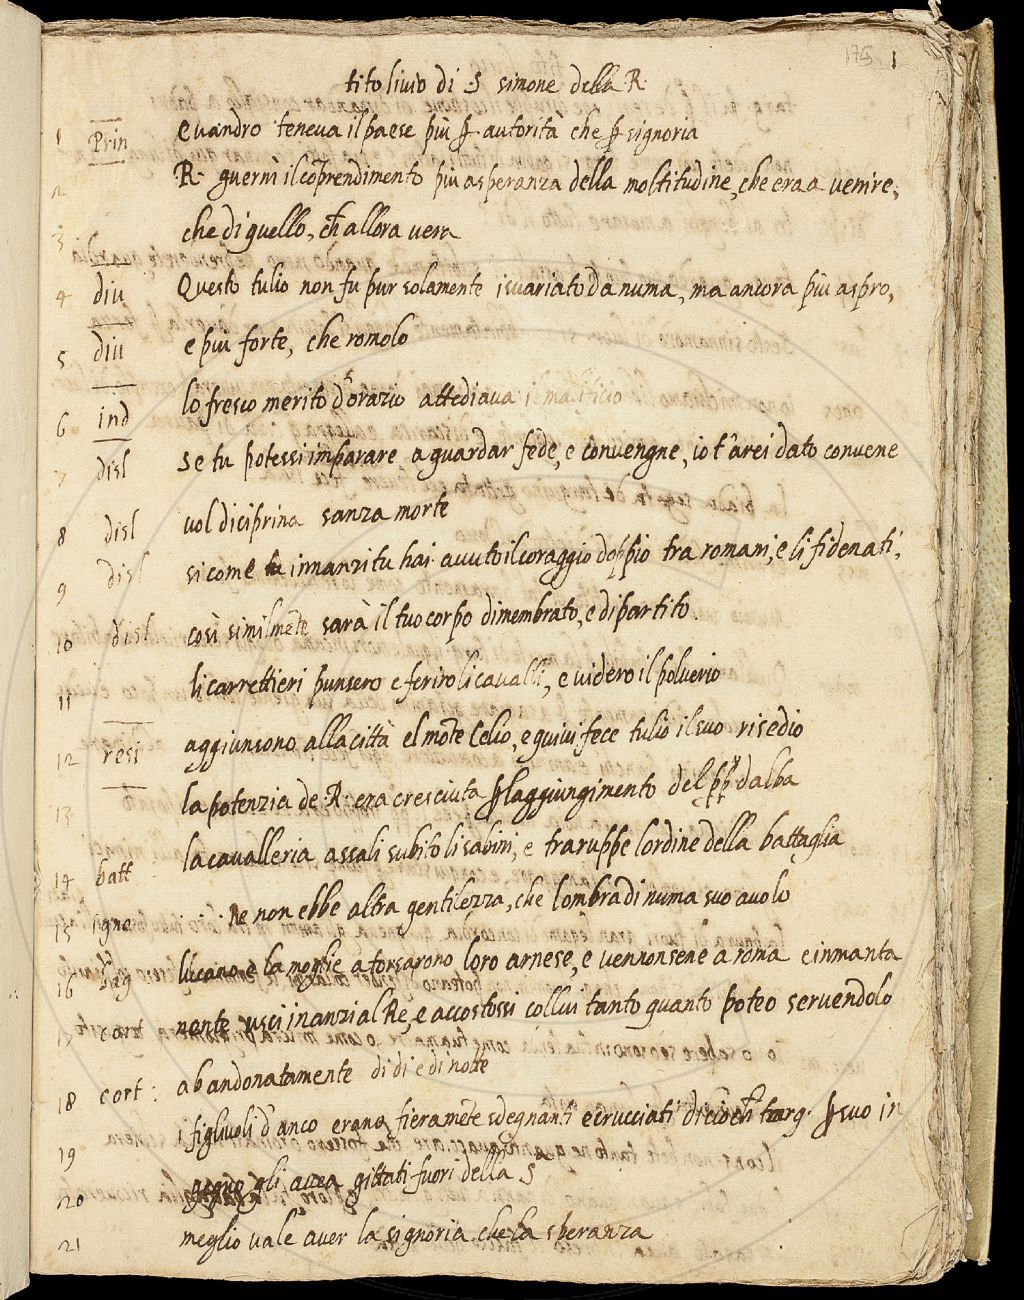 175 1
tito livio di S simone della R.
1 Prin Evandro teneva il paese più p autorità che p signoria
2 R. guernì il cōprendimento più a speranza della moltitudine, che era a venire,
3 che di quello, ch̄ allora vera
4 diu Questo tulio non fu pur solamente isvariato da numa, ma ancora più aspro,
5 diu e più forte, che romolo
6 ind lo fresco merito d'orazio attediava il malificio
7 disl se tu potessi imparare a guardar fede, e convengne, io t'arei dato convene
8 disl vol diciprina sanza morte
9 disl si come innanzi tu hai avuto il coraggio doppio tra romani, e li fidenati,
10 disl così similmēte sarà il tuo corpo dimembrato, e dipartito.
11 li carrettieri punsero e feriro li cavalli, e videro il polverio
12 resi aggiunsono alla città el mōte Celio, e quivi fece tulio il suo risedio
13 la potenzia de R. era cresciuta p laggiungimento del dalba
14 batt la cavalleria assalì subito li sabini, e traruppe lordine della battaglia
15 igno Re non ebbe altra gentilezza, che lombra di numa suo avolo
16 bag lucano e la moglie a forsarono loro arnese, e vennonsene a roma e inmanta
17 cort nente usci inanzi al Re, e accostossi collui tanto quanto poteo servendolo
18 cort: abandonatamente di di e di notte
19 i figlivoli d'anco erano fieramēte sdegnanti e crucciati di ciò ch̄ tarq. p suo in
20 gegno gli avea gittati fuori della S
21 meglio vale aver la signoria che la speranza